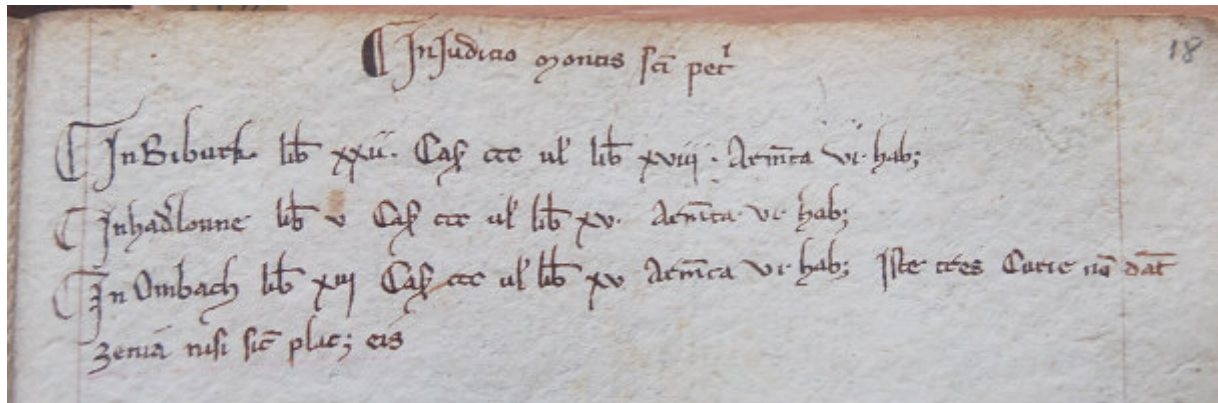 ¶ In Judicio montis sci̅ pet͛ 18
¶ In Biburk lib̅ xxii. Cas̨ ccc ul̕ lib̅ xviii. Arm̅ta vi. hab;
¶ In had̕lonne lib̅ v Cas̨ ccc ul̕ lib̅ xv. Arm̅ta vi. hab;
¶ In Ombach lib̅ xiij Cas̨ ccc ul̕ lib̅ xv Arm̅ta vi. hab; Iste tres Curie no̅ da̅t
Zenia̅ nisi sic̅ plac; eis